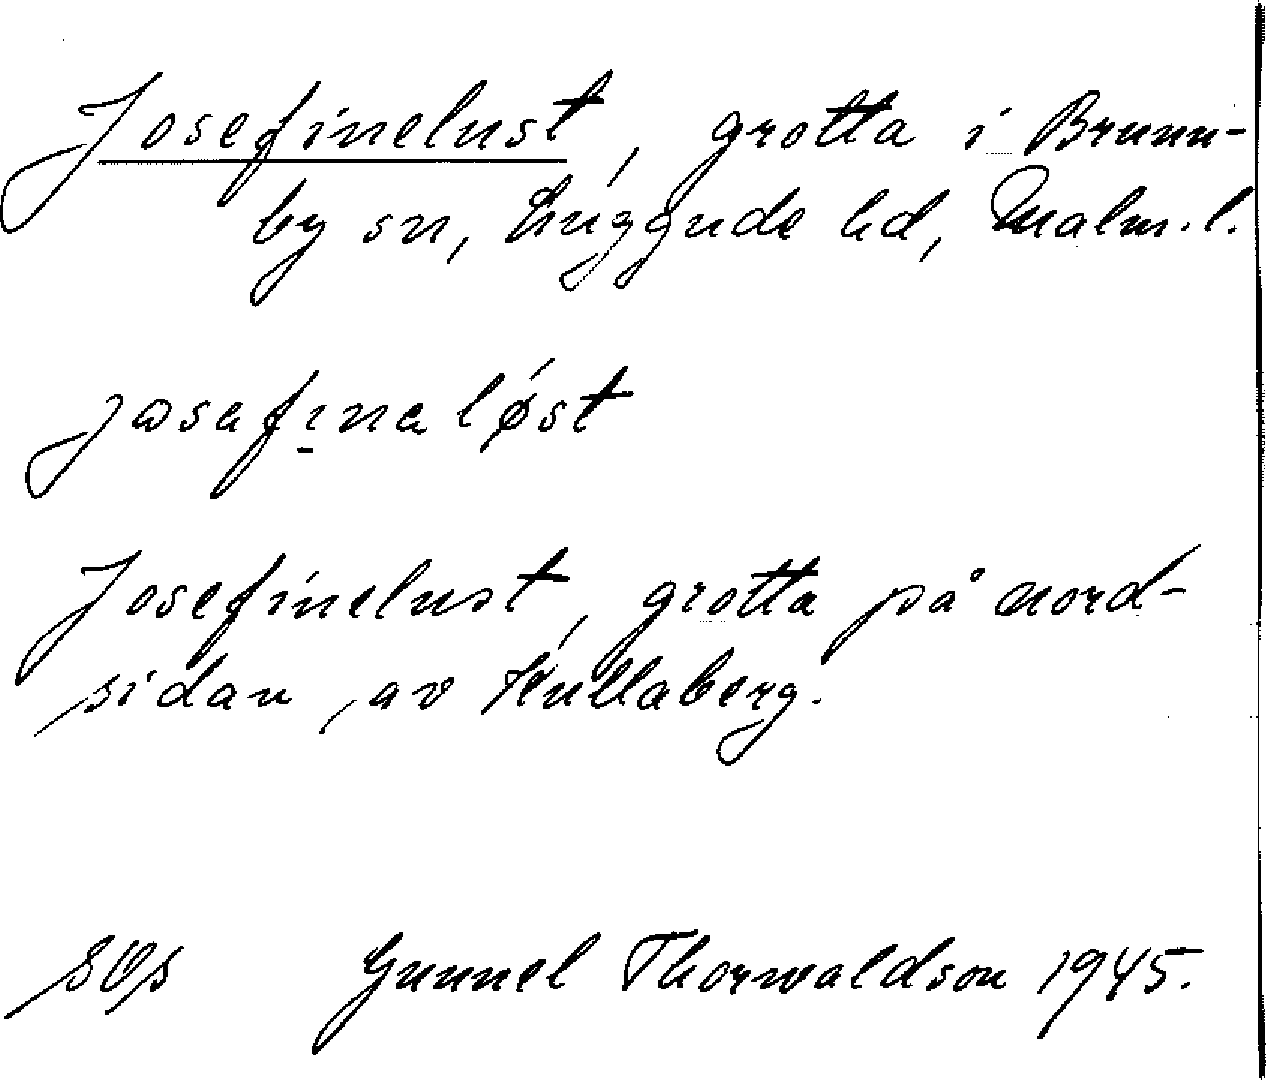 Josefinelust, grotta i Brunn-
by sn, Luggude hd, Malm. l.
josafinaløst
Josefinelust, grotta på nord-
sidan av Kullaberg.
Gunnel Thorwaldson 1945.